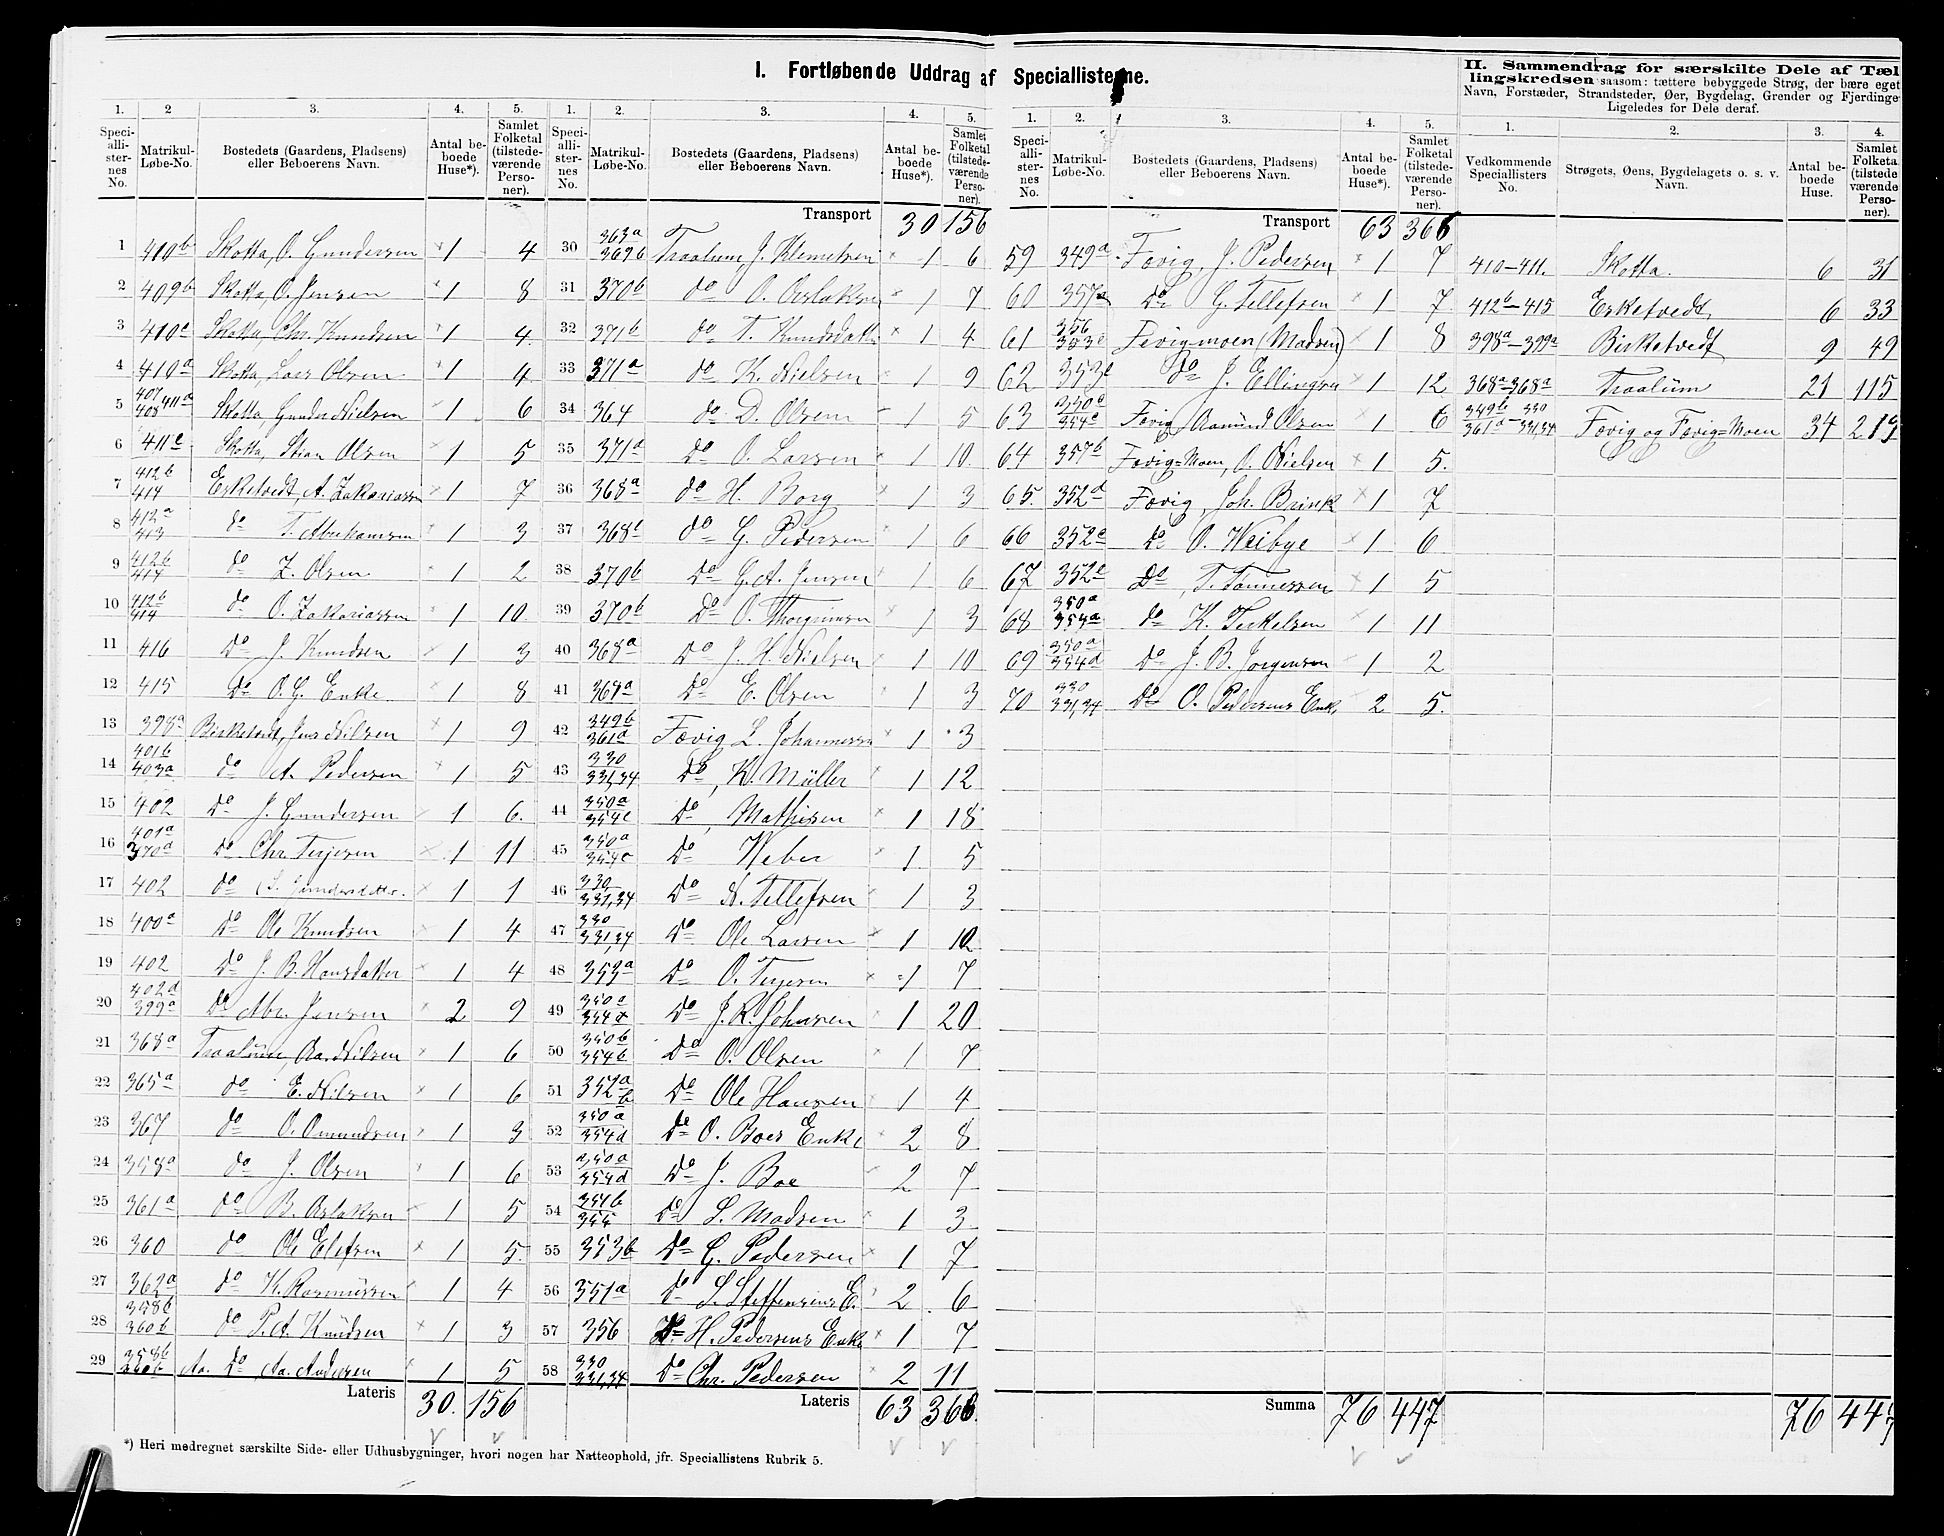 I. Fortløbende Uddrag af Speciallisterne.
II. Sammendrag for særskilte Dele af Tæl
lingskredsen saasom: tættere bebyggede Strøg, der bære eget
Navn, Forstæder, Strandsteder, Øer, Bygdelag, Grender og Fjerdinge
Ligeledes for Dele deraf.
1. 2 3. 4. 5. 1. 2. 3. 4. 5. 1. 2. 3. 4. 5. 1. 2. 3. 4.
Speci-alli-ster-nes No. Matrikul-Løbe-No. Bostedets (Gaardens, Pladsens) eller Beboerens Navn. Antal be-boede Huse*). Samlet Folketal (tilstede-værende Perso-ner).
Speci-alli-ster-nes No. Matrikul-Løbe-No. Bostedets (Gaardens, Pladsens) eller Beboerens Navn. Antal be-boede Huse*). Samlet Folketal (tilstede-værende Perso-ner).
Speci-alli-ster-nes No. Matrikul-Løbe-No. Bostedets (Gaardens, Pladsens) eller Beboerens Navn. Antal be-boede Huse*). Samlet Folketal (tilstede-værende Perso-ner).
Vedkommende Speciallisters No. Strøgets, Øens, Bygdelagets o. s. v. Navn. Antal be-boede Huse. Samlet Folketa (tilstede værende Perso-ner).
1 410b Skotta, O. Gundersen × 1 4
2 409b Skotta, O. Jensen × 1 8
3 410c Skotta, Chr. Knudsen × 1 4.
4 410a Skotta, Lars Olsen × 1 4
5 407 408 411a Skotta, Gunder Nielsen 1 6
6 411c Skotta, Stian Olsen 1 5
7 412b 414 Esketvedt, A. Zakariassen 1 7
8 412a 413 do T. Abrahamsen × 1 3
9 412b 414 do Z. Olsen × 1 2
10 412b 414 do O. Zakariassen 1 10.
11 416 Do J. Knudsen × 1 3
12 415 Do O. G. Enke × 1 8
13 398a Birketvedt, Jens Nilsen × 1 9
14 401b 403a do A. Pedersen × 1 5
15 402 Do J. Gundersen 1 6.
16 401a 370d do Chr. Terjesen × 1 11
17 402 do × 1 1
18 400a Do Ole Knudsen × 1 4
19 402 Do J. B. Hansdatter × 1 4
20 402d 399a Do Abr. Jensen × 2 9
21 368a Traalum, Aa. Nilsen × 1 6
22 365a do E. Nilsen × 1 6
23 367 do O. Omundsen × 1 3
24 358a do J. Olsen 1 6
25 361a do B. Aslaksen 1 5
26 360 do Ole Elefsen × 1 5.
27 362a do K. Rasmüssen 1 4
28 358b 360b do P. A. Knüdsen × 1 3
29 358b 360b Aa. Do Aa. Andersen 1 5
Lateris 30. 156
Transport 30 156
30 363a 369b Traalum, J. Klemetsen × 1 6
31 370b do O. Aslaksen × 1 7
32 371b do T. Knudsdatter × 1 4
33 371a do K. Nielsen 1 9
34 364 do D. Olsen 1 5
35 371a Do O. Larsen 1 10.
36 368a do H. Borg 1 3
37 368c do G. Pedersen 1 6
38 370b Do G. A. Jensen 1 6
39 370b Do O. Thorgrimsen 1 3
40 368a Do J. H. Nielsen 1 10
41 368a Do E. Olsen 1 3
42 349b 361a Fævig L. Johannessen × 1 3
43 330 331,34 Do, K. Müller 1 12
44 350a 354c Do, Mathisen × 1 18
45 350a 354c Do Weber × 1 5
46 330 331,34 Do N. Tellefsen × 1 3
47 330 331,34 Do Ole Larsen × 1 10
48 353a Do O. Terjesen × 1 7
49 350a 354a Do J. R. Johnsen × 1 20
50 350b 354b Do O. Olsen 1 7
51 352a b Do Ole Hansen 1 4
52 350a 354d Do O. Boes Enke 2 8
53 350a 354d Do J. Boe 2 7
54 351b 355 Do S. Madsen 1 3
55 353b Do G. Pedersen × 1 7
56 351a do S. Steffensens E. 2 6
57 356 Do H. Pedersens Enke × 1 7
58 330 331,34 Do Chr. Pedersen 2 11
Lateris 63 366.
Transport 63 366
59 349a Fævig, J. Pedersen × 1 7
60 357a Do G. Tellefsen × 1 7
61 356 353c Fævigmoen (Madsen) 1 8
62 353c do J. Ellingsen × 1 12
63 350c 354c Fævig Aamund Olsen 1 6
64 357b Fævig=Moen, O. Nielsen × 1 5.
65. 352d Fævig, Joh. Brink × 1 7
66 352c Do O. Weibye × 1 6
67 352c Do, T. Tønnessen × 1 5
68 350a 353a do K. Terkelsen 1 11
69 350a 354d Do J. B. Jørgensen 1 2
70 330 331,34 Do O. Pedersens Enk. 2 5.
Summa 76 447
410-411. Skotta. 6 31
412b-415 Esketvedt, 6 33
398a-399a Birketvedt 9 49
368a-368a Traalüm 21 115
349b-330 361a-331,34 Fævig og Fævig=Moen 34 219
76 447
*) Heri medregnet særskilte Side- eller Udhusbygninger, hvori nogen har Natteophold, jfr. Speciallistens Rubrik 5.